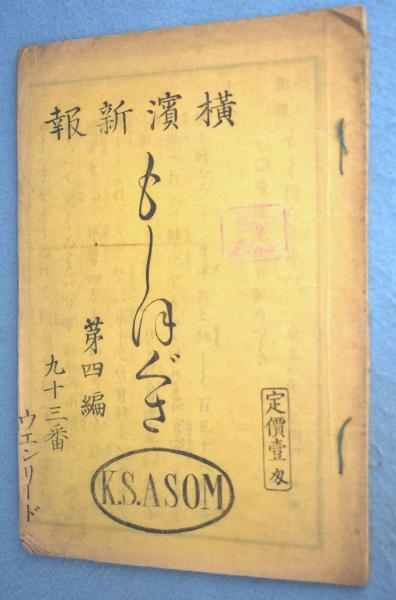 橫濱新報
もしほぐさ
第四編
九十三番
ウエンリード
定價壹匁
K.S.ASOM